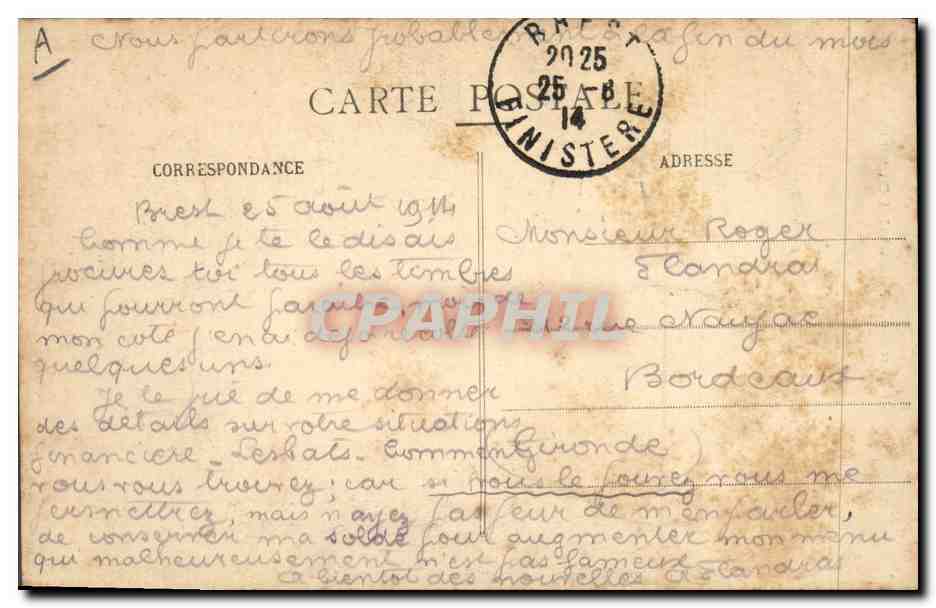 A
Nous partirons probablement à la fin du mois
BREST
20 25
25 -8
14
FINISTERE
CARTE POSTALE
CORRESPONDANCE
ADRESSE
Brest 25 août 1914
Comme je te le disais
procures toi tous les timbres
qui pourront paraître, moi de
mon coté j'en ai déjà
quelques uns.
Je te prie de me donner
des détails sur votre situation
financière - Lesbats - Comment
vous vous trouvez; car si vous le pouvez vous me
permettrez, mais n'ayez pas peur de m'en parler,
de conserver ma solde pour augmenter mon menu
qui malheureusement n'est pas fameux
A bientôt des nouvelles Flandra
Monsieur Roger
Flandra
rue Naujac
Bordeaux
(Gironde)
CPAPHIL